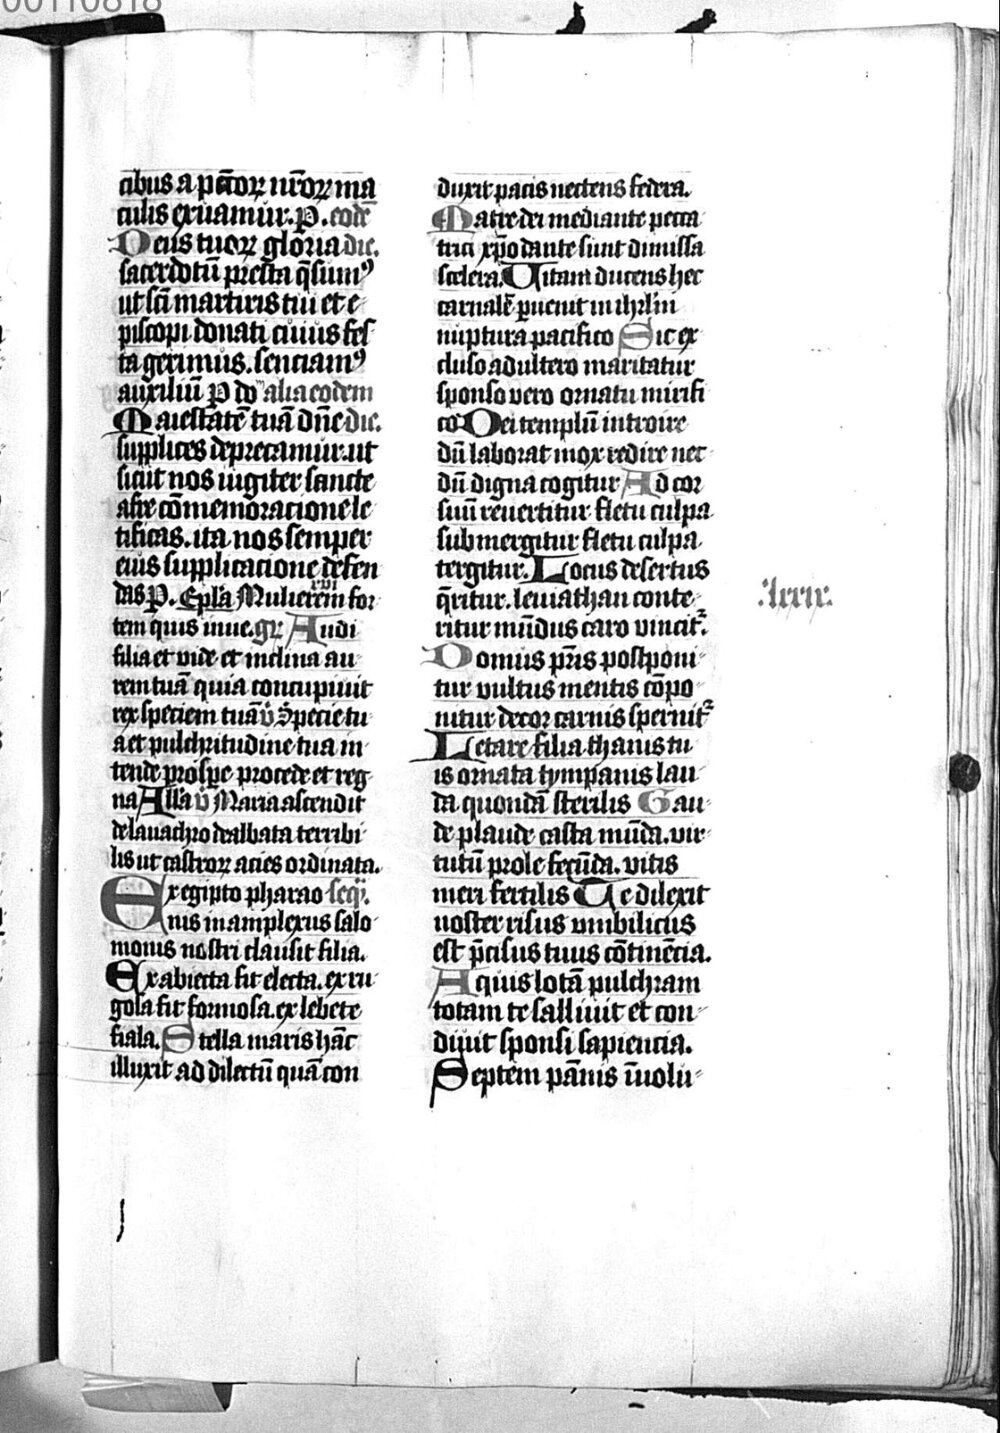 00110818
cibus a pctõꝝ nr̃oꝝ ma
culis exuamur. P. eodẽ
Deus tuoꝝ gloria dic.
sacerdotũ presta q̃sumꝰ
ut sc̃i martiris tui et e
piscopi donati cuius fes
ta gerimus. senciamꝰ
auxiliũ P do alia eodem
Maiestatẽ tuã dñe dic.
supplices deprecamur. ut
sicut nos iugiter sancte
afre cõmemoracione le
tificas. ita nos semper
eius supplicacione defen
das P. Epl̃a Mulierem for
tem quis inue. gr̃ Audi
filia et vide et inclina au
rem tuã quia concupiuit
rex speciem tuã v̾ Specie tu
a et pulchritudine tua in
tende prospe procede et reg
na All̃a v̾ Maria ascendit
de lauachro dealbata terribi
lis ut castroꝝ acies ordinata.
Ex egipto pharao seq̃.
nis in amplexus salo
monis nostri clausit filia.
Ex abiecta fit electa. ex ru
gosa fit formosa. ex lebete
fiala. Stella maris hãc
illuxit ad dilectũ quã con
duxit pacis nectens federa.
Matre dei mediante pecca
trici xp̃o dante sunt dimissa
scelera. Vitam ducens hec
carnalẽ puenit in ihrl̃m
nuptura pacifico Sic ex
cluso adultero maritatur
sponso vero ornatu mirifi
co Dei templũ introire
dũ laborat mox redire nec
dũ digna cogitur Ad cor
suũ reuertitur fletu culpa
submergitur fletu culpa
tergitur. Locus desertus
q̃ritur. leuiathan conte
ritur mũdus caro vincit᷑.
Domus pr̃is postponi
tur vultus mentis cõpo
nitur decor carnis spernit᷑
Letare filia thanis tu
is ornata tympanis lau
da quondã sterilis Gau
de plaude casta mũda. vir
tutũ prole fecũda. vitis
meri fertilis Te dilexit
noster risus umbilicus
est p̃cisus tuus cõtinẽcia.
Aquis lotã pulchram
totam te salliuit et con
diuit sponsi sapiencia.
Septem pãnis ĩuolu